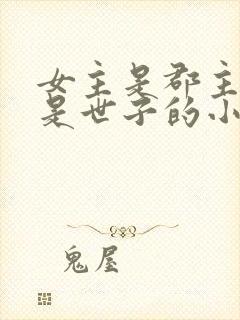 女主是郡主
是世子的小
鬼屋